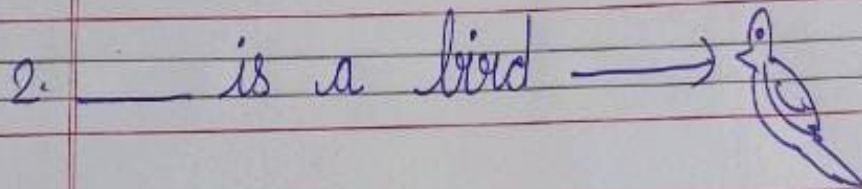 2. ____ is a bird →